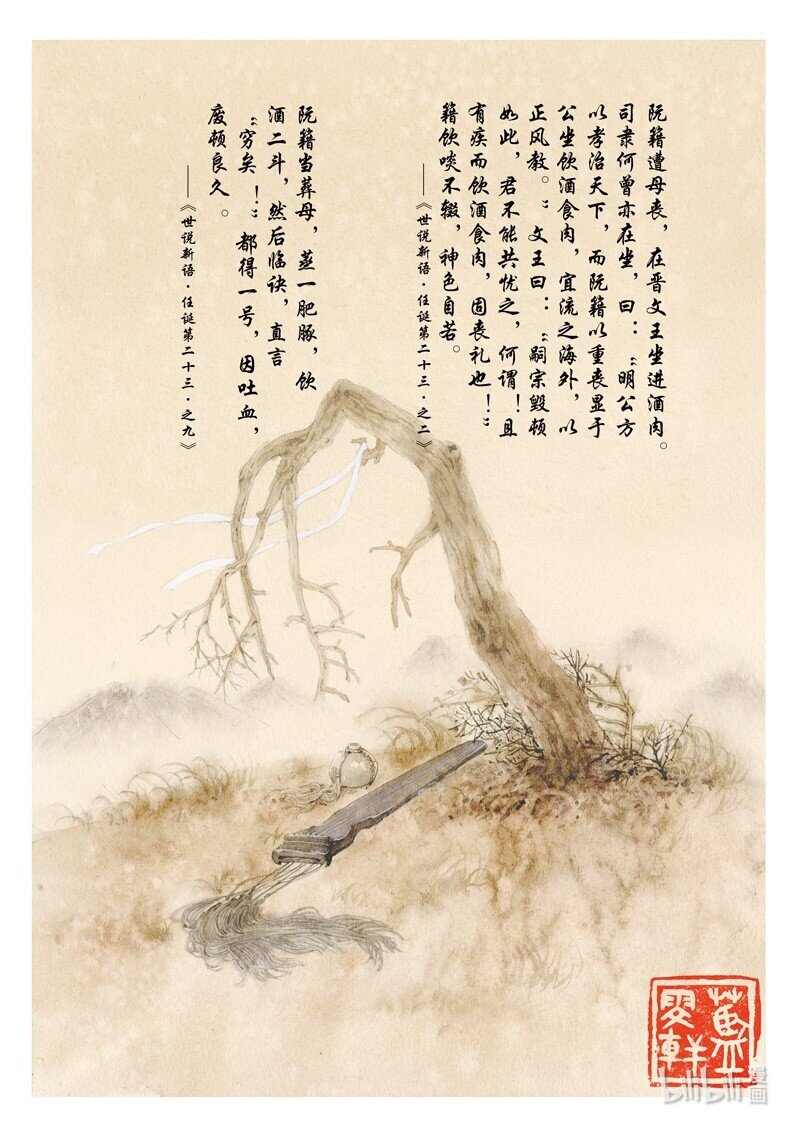 阮籍遭母丧，在晋文王坐进酒肉。
司隶何曾亦在坐，曰：“明公方
以孝治天下，而阮籍以重丧显于
公坐饮酒食肉，宜流之海外，以
正风教。”文王曰：“嗣宗毁顿
如此，君不能共忧之，何谓！且
有疾而饮酒食肉，固丧礼也！”
籍饮啖不辍，神色自若。
——《世说新语·任诞第二十三·之二》
阮籍当葬母，蒸一肥豚，饮
酒二斗，然后临诀，直言
“穷矣！”都得一号，因吐血，
废顿良久。
——《世说新语·任诞第二十三·之九》
bilibili
漫画